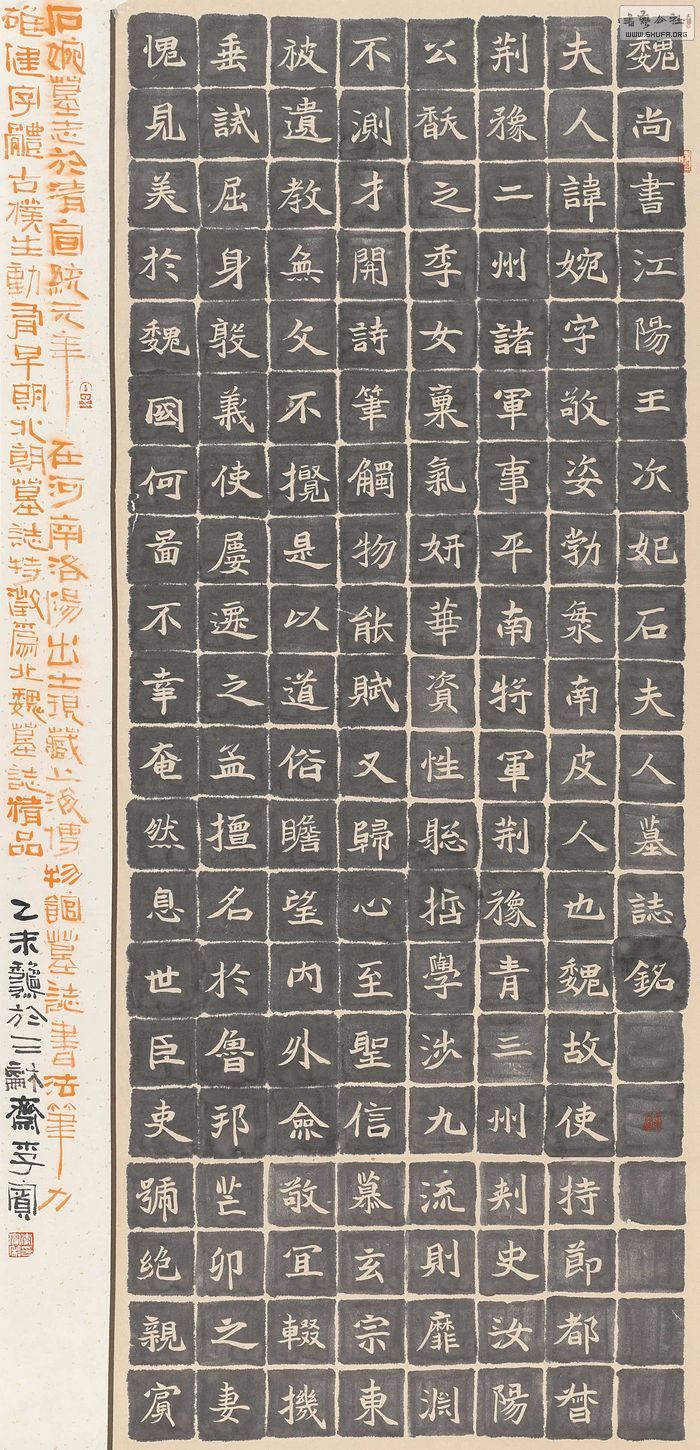 书艺公社
WWW.SHUFA.ORG
魏尚書江陽王次妃石夫人墓誌銘
夫人諱婉字敬姿勃海南皮人也魏故使持節都督
荆豫二州諸軍事平南將軍荆豫青三州刾史汝陽
公馛之季女稟氣妍華資性聡哲學涉九流則靡淵
不測才開詩筆觸物能賦又歸心至聖信慕玄宗東
被遺教無文不攬是以道俗瞻望内外僉敬宜輟機
垂試屈身殷義使屢遷之孟擅名於魯邦芒卯之妻
愧見美於魏國何啚不幸奄然息世臣吏號绝親賓
石婉墓志於清宣統元年在河南洛陽出土現藏上海博物館墓誌書法筆力
雄健字體古樸生動有早期北朝墓誌特徵爲北魏墓誌精品
乙未於三龢齋李賓